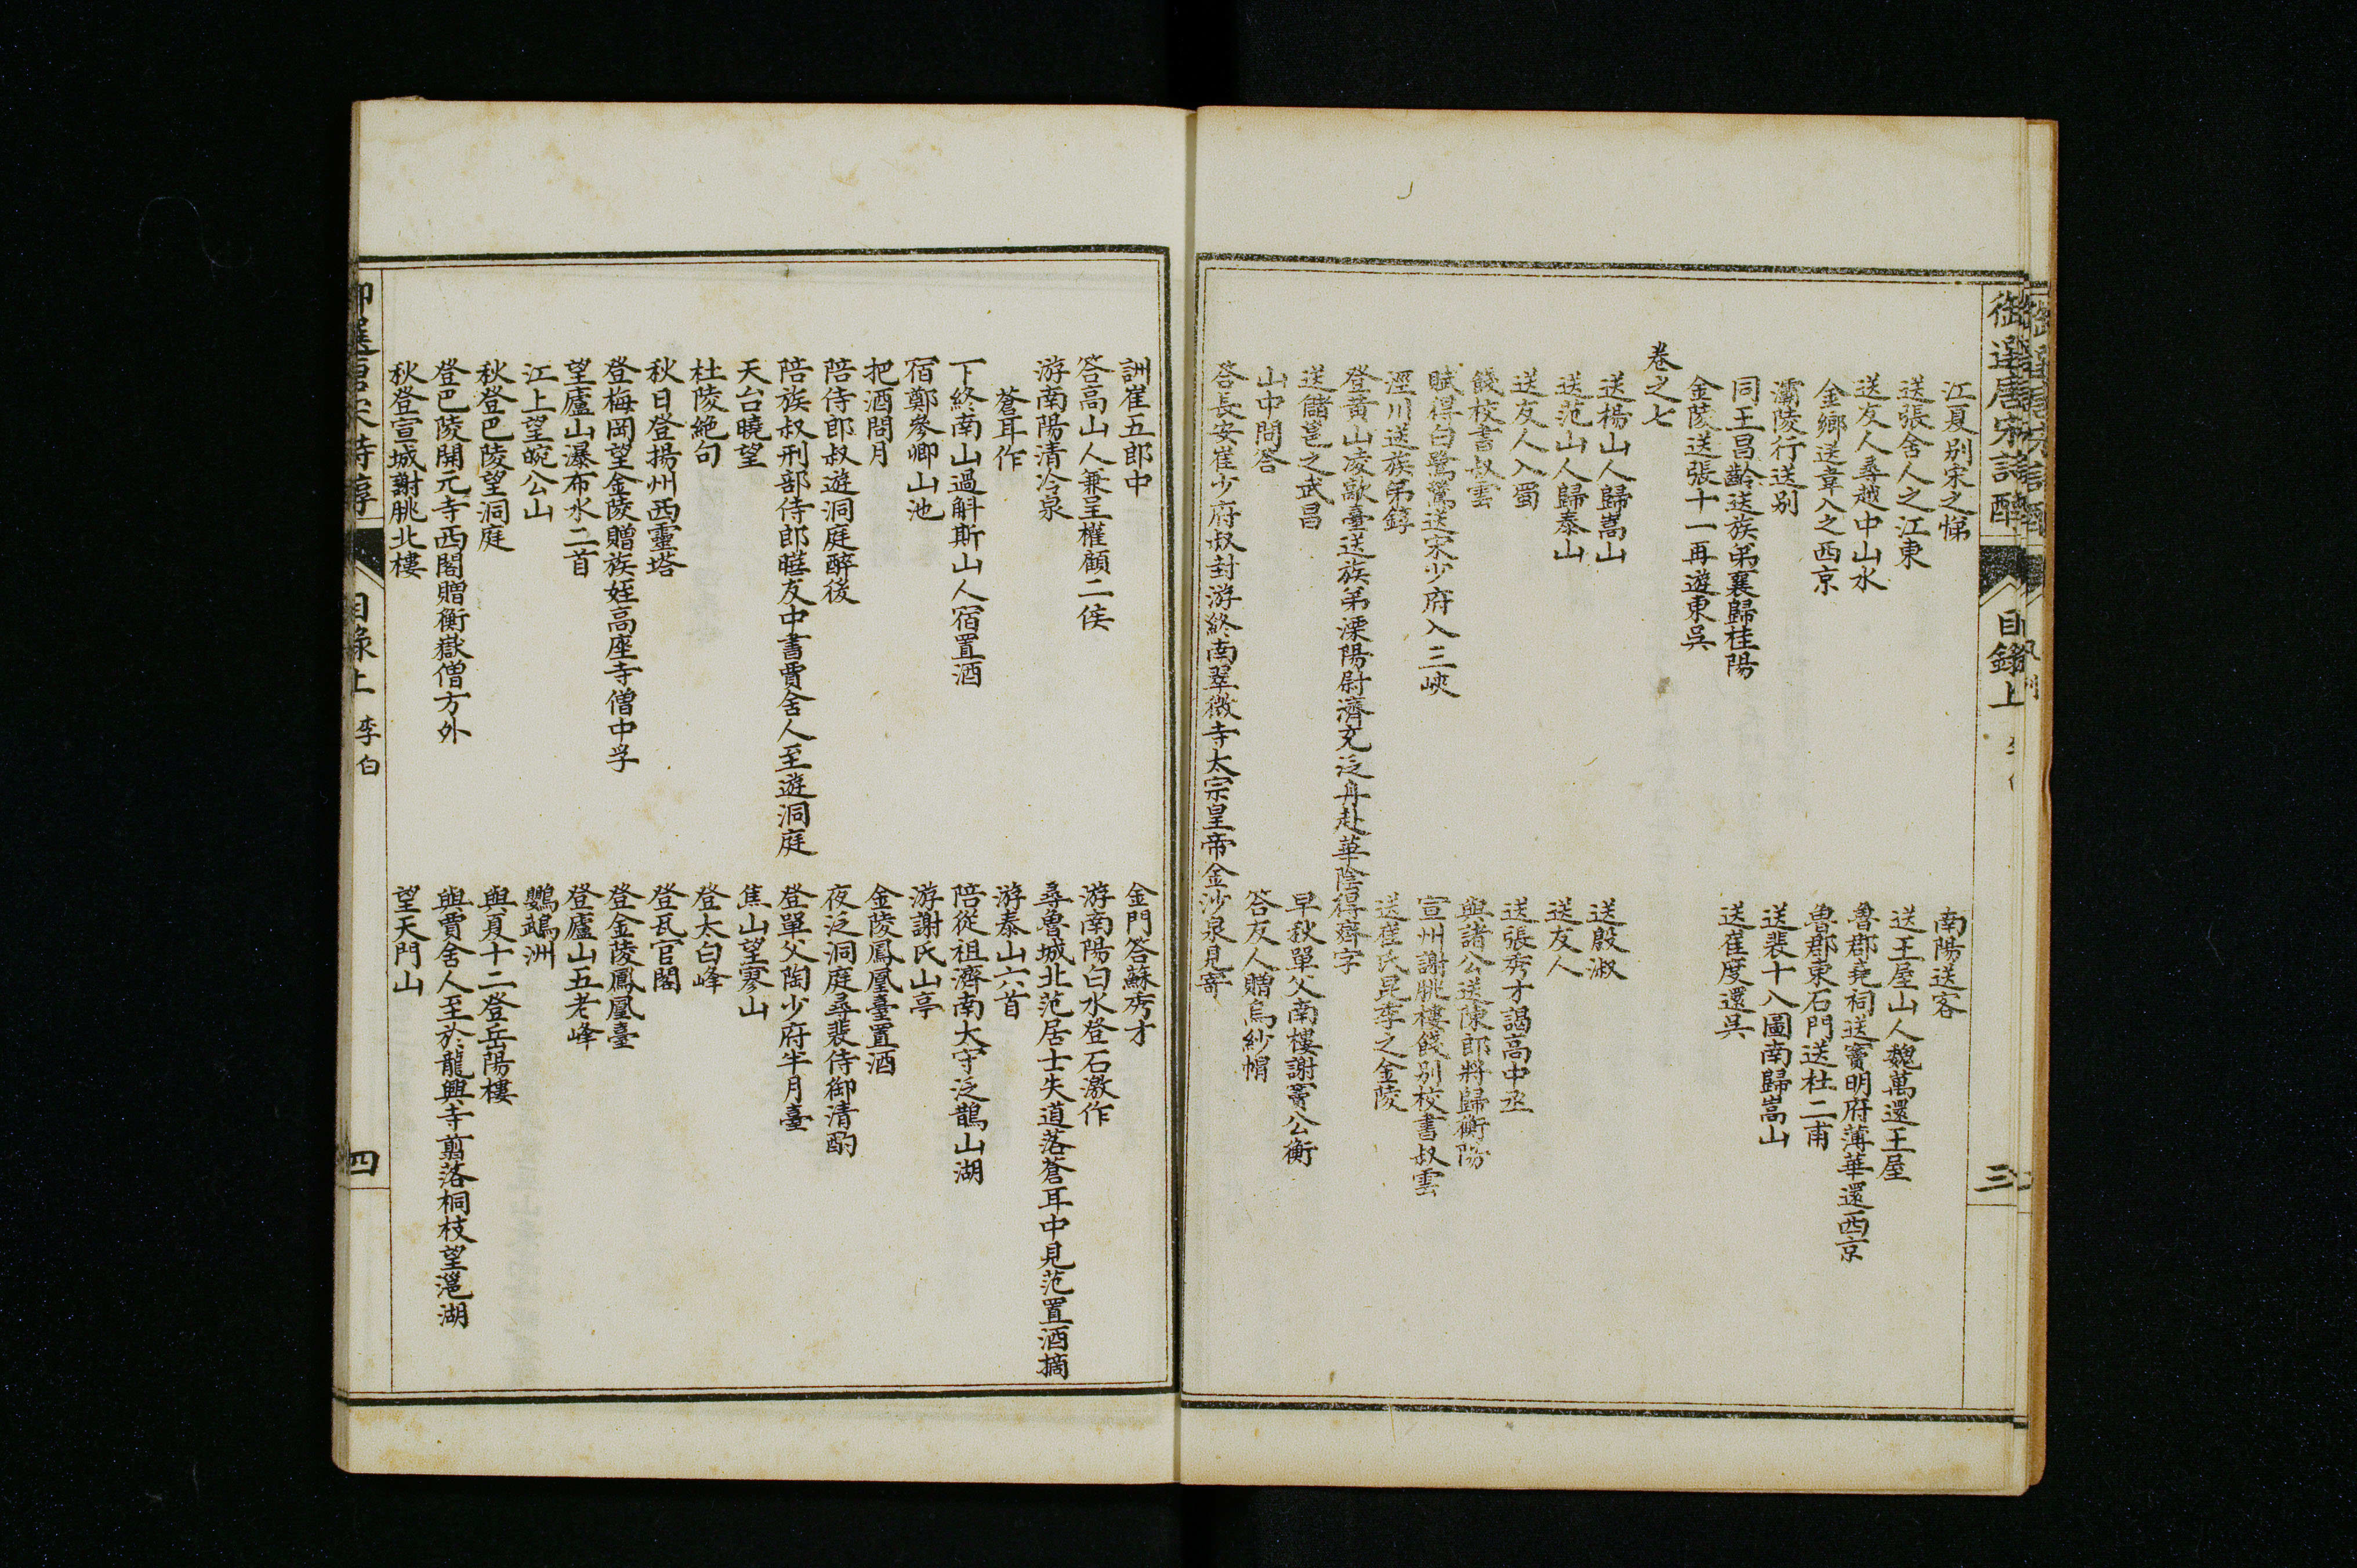 御選唐宋詩醇
目錄上
三
江夏别宋之悌
南陽送客
送張舍人之江東
送王屋山人魏萬還王屋
送友人尋越中山水
魯郡堯祠送竇明府薄華還西京
金鄉送韋八之西京
魯郡東石門送杜二甫
灞陵行送别
送裴十八圖南歸嵩山
同王昌齡送族弟襄歸桂陽
送崔度還吳
金陵送張十一再遊東吳
卷之七
送楊山人歸嵩山
送殷淑
送范山人歸泰山
送友人
送友人入蜀
送張秀才謁高中丞
餞校書叔雲
與諸公送陳郎將歸衡陽
賦得白鷺鷥送宋少府入三峽
宣州謝朓樓餞别校書叔雲
涇川送族弟錞
送崔氏昆季之金陵
登黃山凌歊臺送族弟溧陽尉濟充泛舟赴華陰得齊字
送儲邕之武昌
早秋單父南樓謝竇公衡
山中問答
答友人贈烏紗帽
答長安崔少府叔封游終南翠微寺太宗皇帝金沙泉見寄
訓崔五郎中
金門答蘇秀才
答高山人兼呈權顧二侯
游南陽白水登石激作
游南陽清泠泉
尋魯城北范居士失道落蒼耳中見范置酒摘
蒼耳作
游泰山六首
下終南山過斛斯山人宿置酒
陪從祖濟南太守泛鵲山湖
宿鄭參卿山池
游謝氏山亭
把酒問月
金陵鳳凰臺置酒
陪侍郎叔遊洞庭醉後
夜泛洞庭尋裴侍御清酌
陪族叔刑部侍郎曄友中書賈舍人至遊洞庭
登單父陶少府半月臺
天台曉望
焦山望寥山
杜陵絶句
登太白峰
秋日登揚州西靈塔
登瓦官閣
登梅岡望金陵贈族姪高座寺僧中孚
登金陵鳳凰臺
望廬山瀑布水二首
登廬山五老峰
江上望皖公山
鸚鵡洲
秋登巴陵望洞庭
與夏十二登岳陽樓
登巴陵開元寺西閣贈衡嶽僧方外
與賈舍人至於龍興寺剪落桐枝望灉湖
秋登宣城謝朓北樓
望天門山
御選唐宋詩醇
目錄上 李白
四